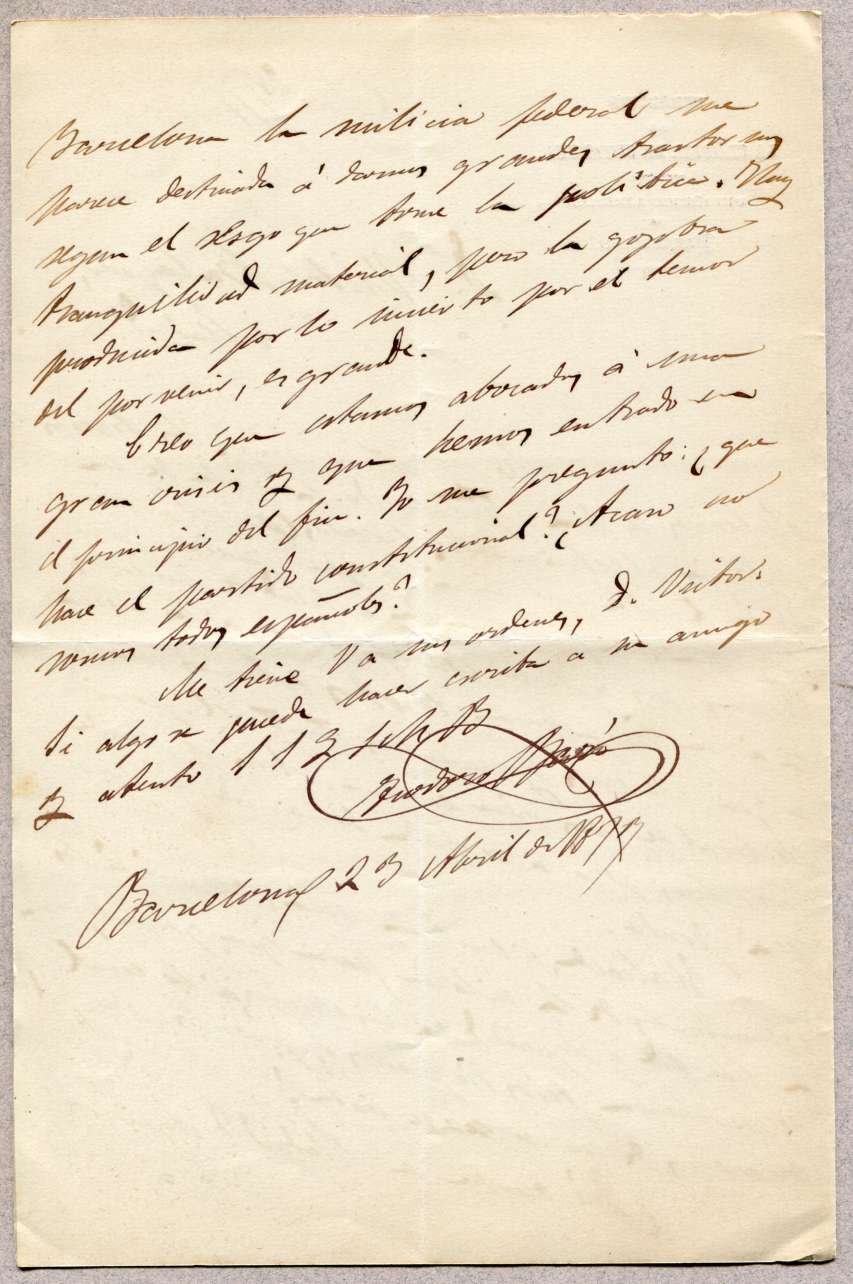 Barcelona la milicia federal me
parece destinada á darnos grandes trastornos
segun el sesgo que tome la politica. Hay
tranquilidad material, pero la zozobra
producida por lo incierto por el temor
del porvenir, es grande.
Creo que estamos abocados á una
gran crisis y que hemos entrado en
el principio del fin. Yo me pregunto: ¿que
hace el partido constitucional? ¿Acaso no
somos todos españoles?
Me tiene V a sus ordenes, D. Victor.
Si algo se puede hacer escriba a su amigo
y atento S S Q S M B
Teodoro
Barcelona 23 Abril de 1873